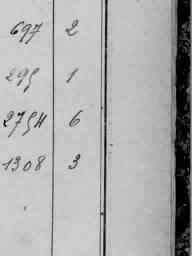 697 2
295 1
2754 6
1308 3